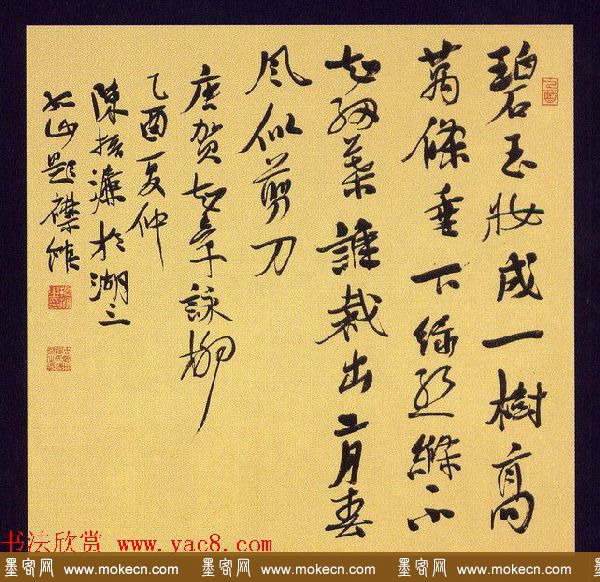 碧玉妝成一樹高
萬條垂下綠絲絛不
知細葉誰裁出二月春
风似剪刀
唐賀知章詠柳
乙酉夏仲
陳振濂於湖上
孤山題襟館
书法欣赏 www.yac8.com
墨客网 www.mokecn.com 墨客网 www.mokecn.com 墨客网 www.mokecn.com